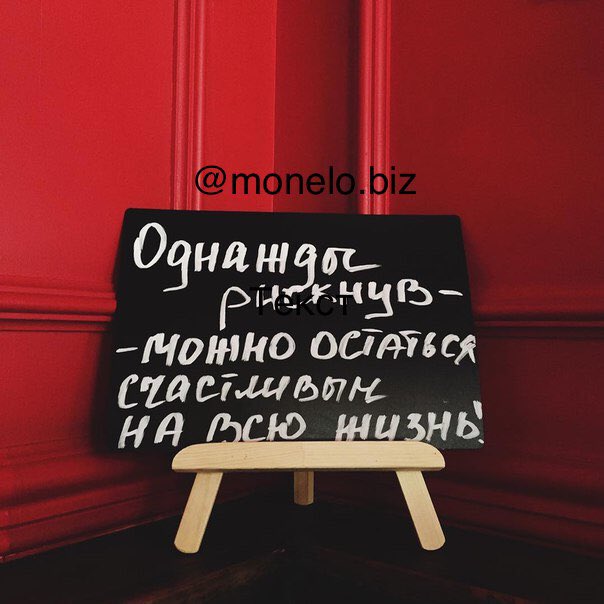 @monelo.biz
Однажды
рискнув-
Текст
-можно остаться
счастливым
на всю жизнь!